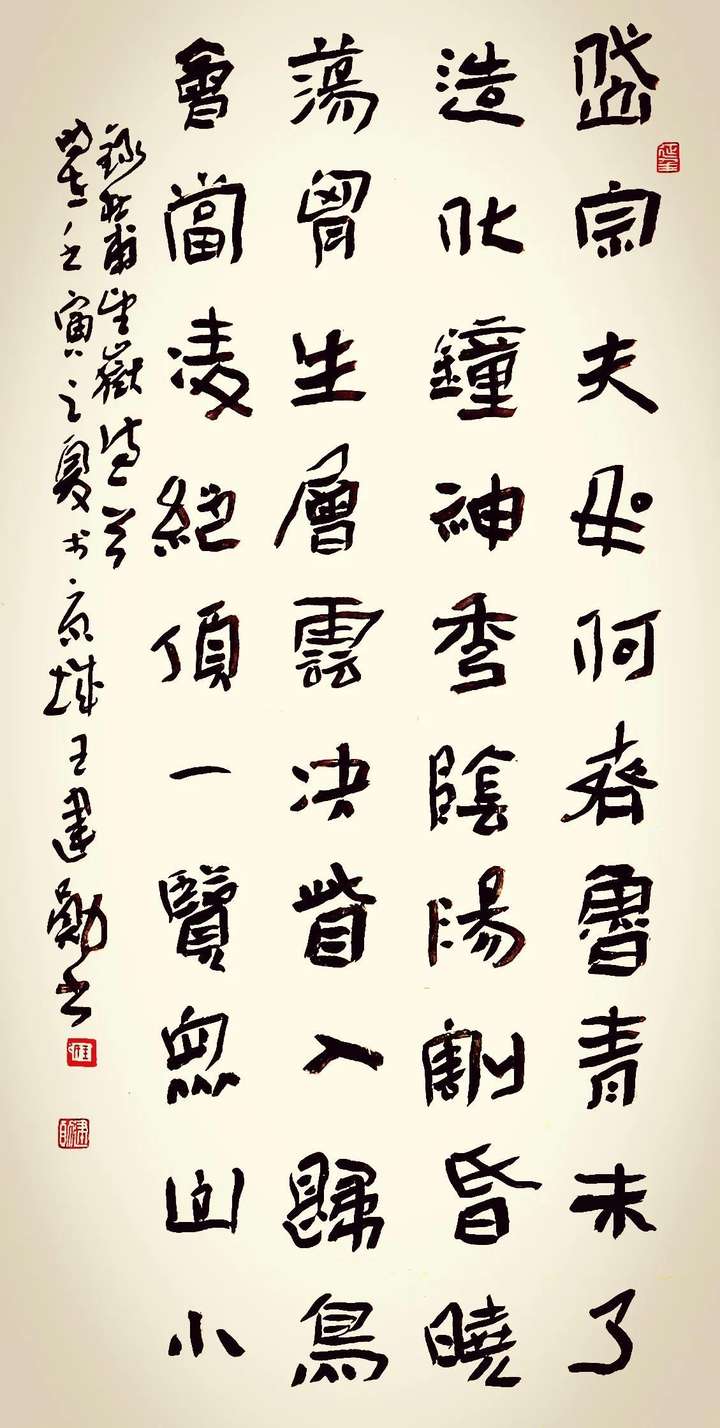 岱宗夫如何齊魯青未了
造化鐘神秀陰陽割昏曉
蕩胷生層雲決眥入歸鳥
會當凌絕頂一覽眾山小
錄杜甫望嶽詩一首
壬寅之夏於京城王建勛书